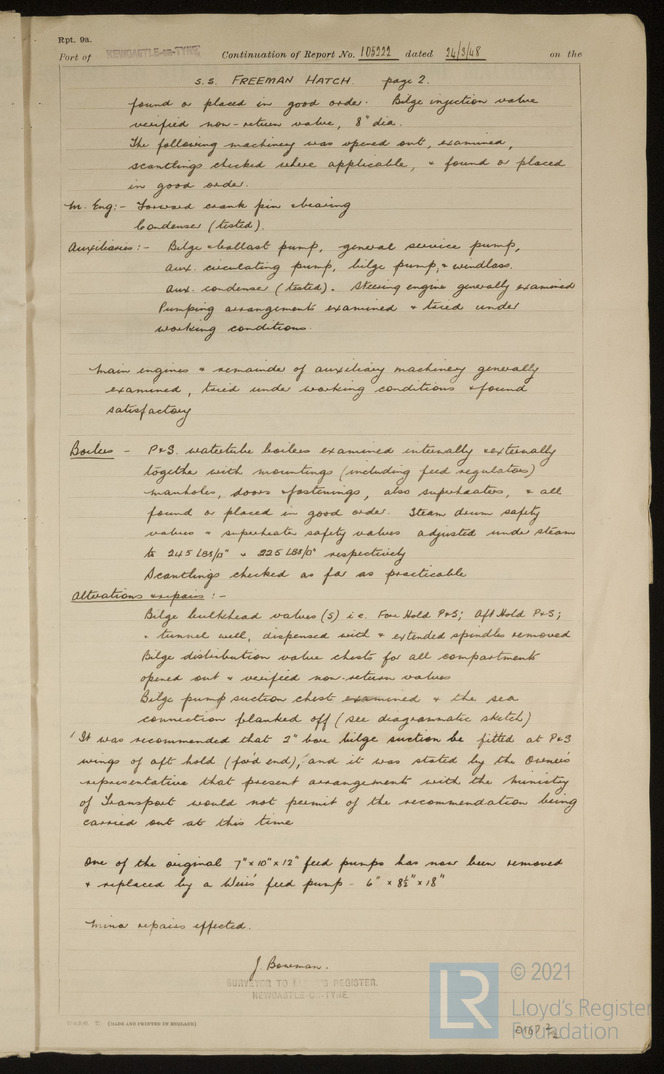 Rpt. 9a.
Port of NEWCASTLE-ON-TYNE Continuation of Report No. 105222 dated 24/3/48 on the
S.S. FREEMAN HATCH. page 2.
found or placed in good order. Bilge injection valve
verified non-return valve, 8" dia.
The following machinery was opened out, examined,
scantlings checked where applicable, & found or placed
in good order.
M. Eng:- Forward crank pin & bearing
Condenser (tested).
Auxiliaries:- Bilge & ballast pump, general service pump,
aux. circulating pump, bilge pump, & windlass.
aux. condenser (tested). Steering engine generally examined
Pumping arrangements examined & tried under
working conditions.
Main engines & remainder of auxiliary machinery generally
examined, tried under working conditions & found
satisfactory
Boilers - P&S. watertube boilers examined internally & externally
together with mountings (including feed regulators)
manholes, doors & fastenings, also superheaters, & all
found or placed in good order. Steam drum safety
valves & superheater safety valves adjusted under steam
to 245 LBS/□" & 225 LBS/□" respectively
Scantlings checked as far as practicable
Alterations & repairs:-
Bilge bulkhead valves (5) i.e. Fore Hold P&S; Aft Hold P&S;
& tunnel well, dispensed with & extended spindles removed
Bilge distribution valve chests for all compartments
opened out & verified non-return valves
Bilge pump suction chest examined & the sea
connection blanked off (see diagrammatic sketch)
'It was recommended that 2" bore bilge suction be fitted at P&S
wings of aft hold (for'd end),' and it was stated by the Owner's
representative that present arrangements with the Ministry
of Transport would not permit of the recommendation being
carried out at this time
One of the original 7" x 10" x 12" feed pumps has now been removed
& replaced by a Weir's feed pump - 6" x 8½" x 18"
Minor repairs effected.
J. Bowman.
SURVEYOR TO LLOYD'S REGISTER.
NEWCASTLE-ON-TYNE.
(MADE AND PRINTED IN ENGLAND)
LR
© 2021
Lloyd's Register
Foundation